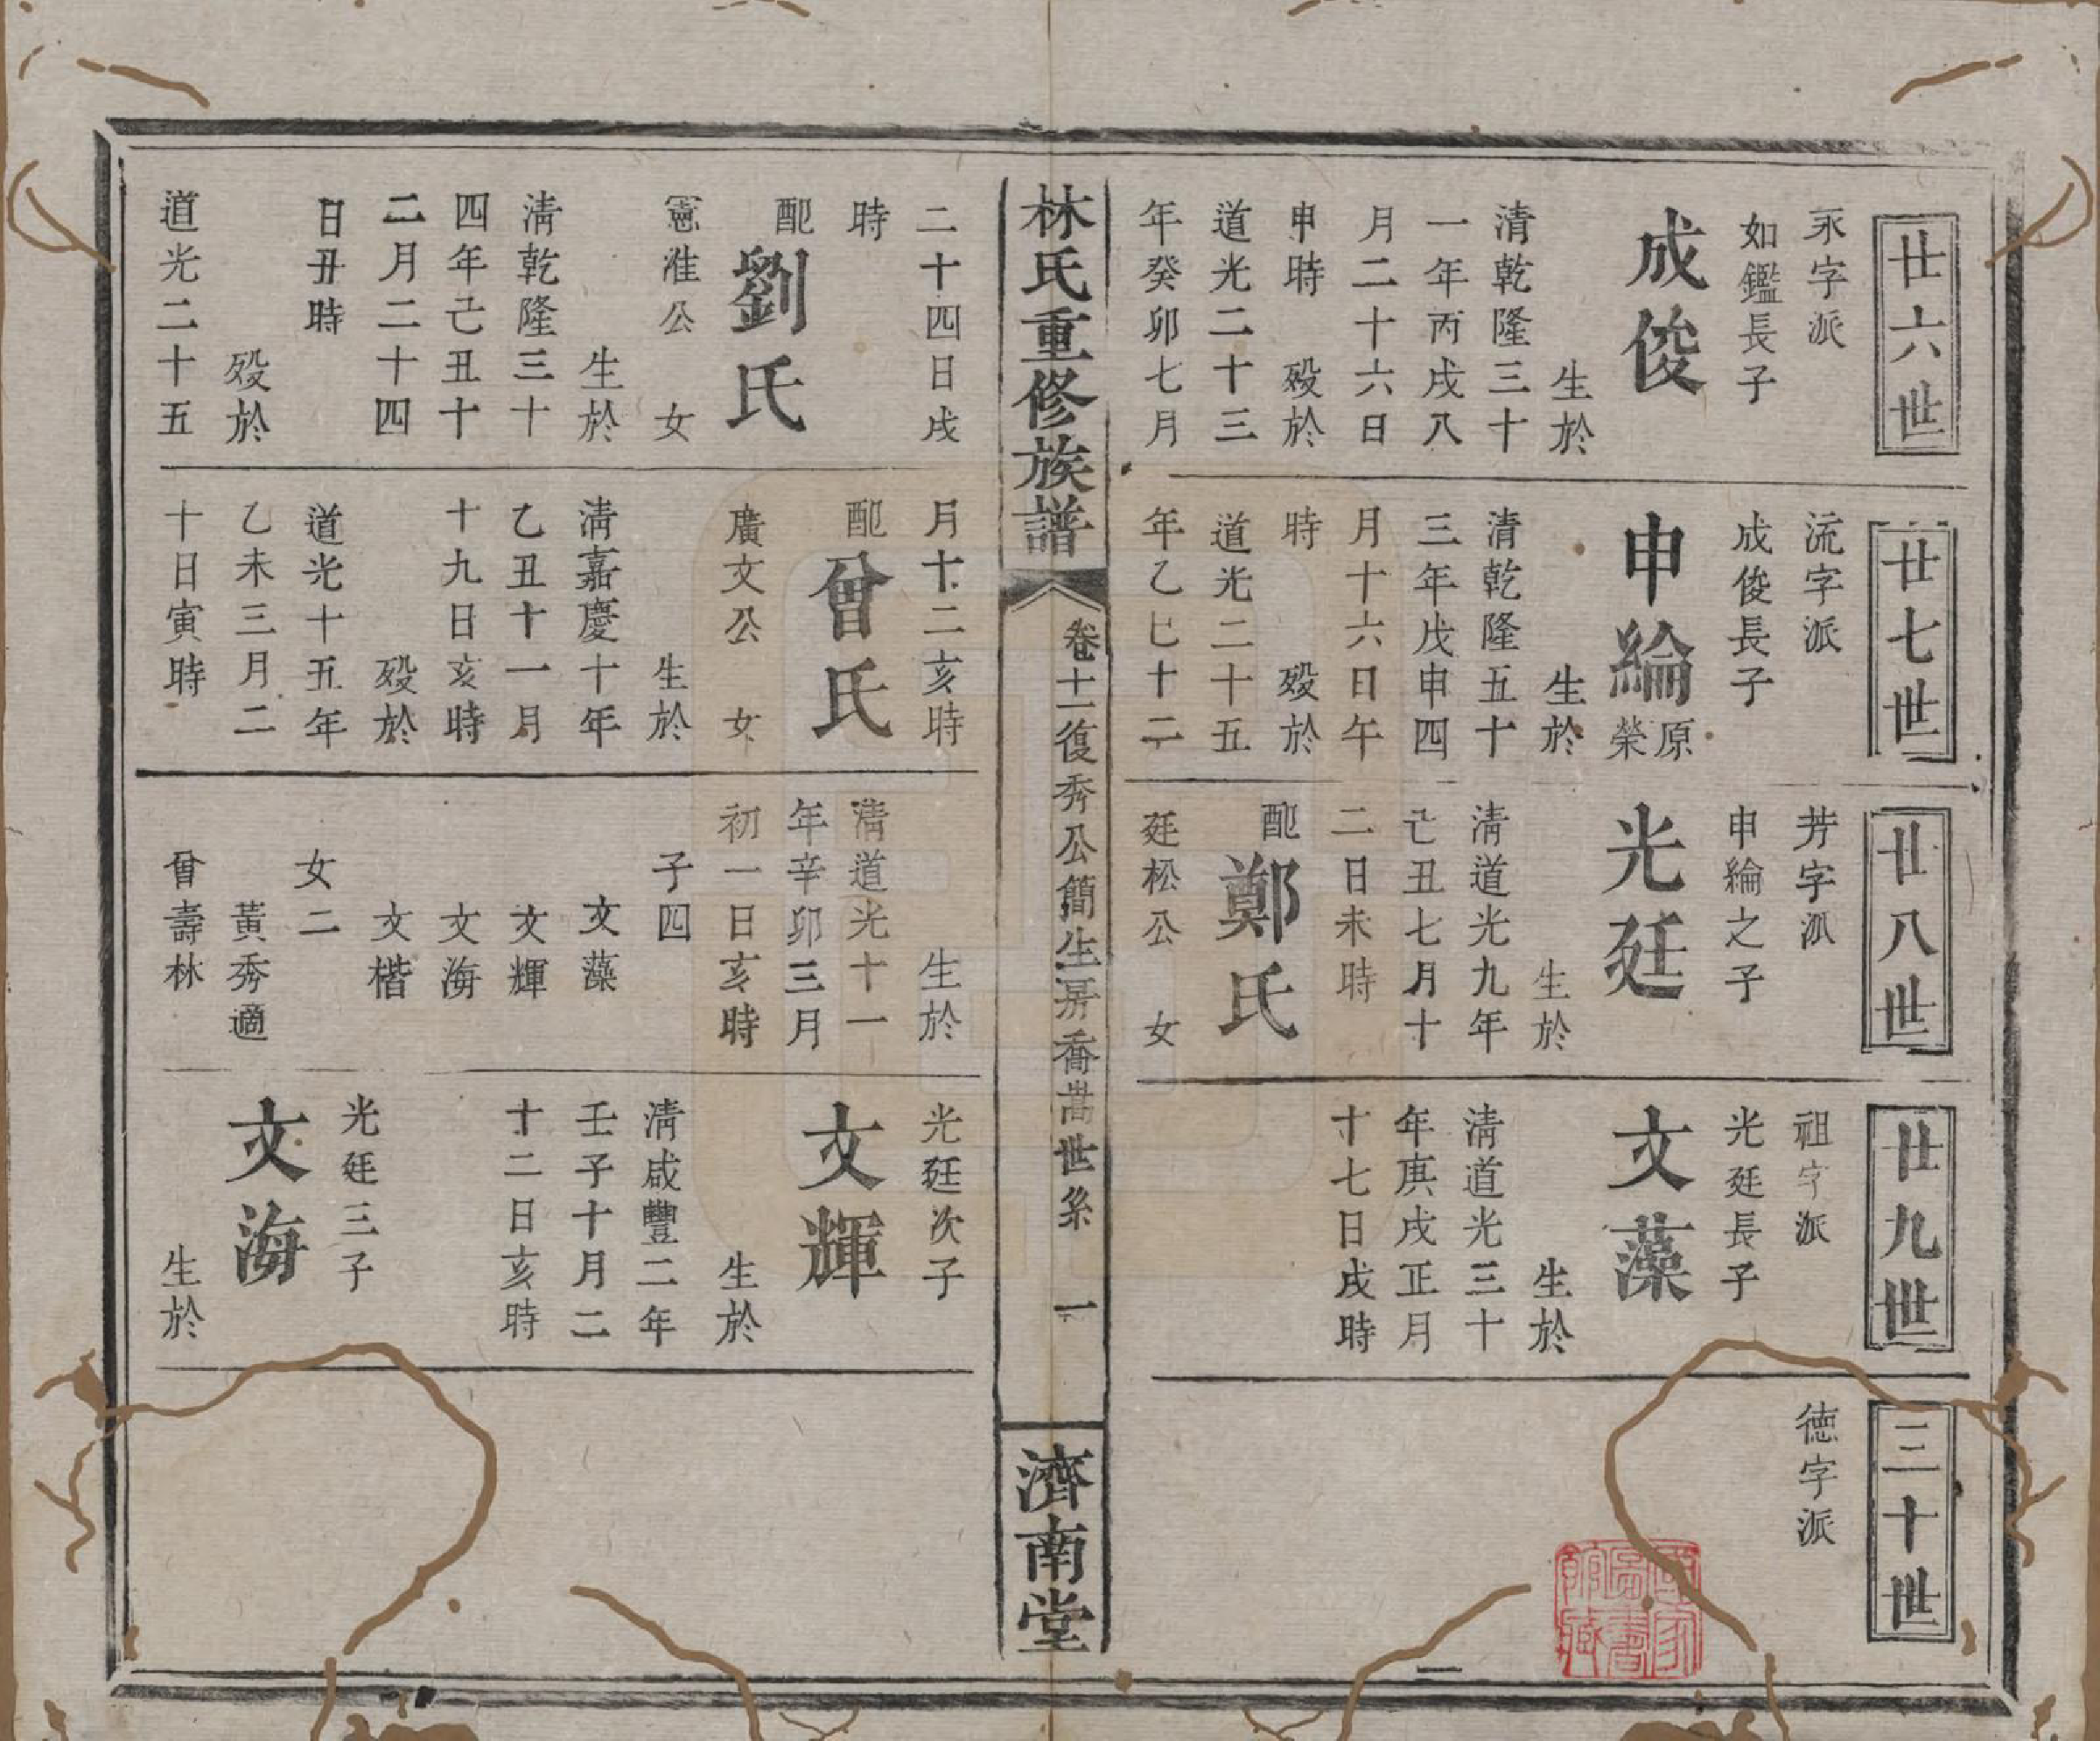 廿六世
永字派
如鑑長子
成俊
生於
清乾隆三十
一年丙戌八
月二十六日
申時 殁於
道光二十三
年癸卯七月
二十四日戌
時
配劉氏
憲淮公 女
生於
清乾隆三十
四年己丑十
二月二十四
日丑時
殁於
道光二十五
廿七世
流字派
成俊長子
申綸 原榮
生於
清乾隆五十
三年戊申四
月十六日午
時 殁於
道光二十五
年乙巳十二
月十二亥時
配曾氏
廣文公 女
生於
清嘉慶十年
乙丑十一月
十九日亥時
殁於
道光十五年
乙未三月二
十日寅時
廿八世
芳字派
申綸之子
光廷
生於
清道光九年
己丑七月十
二日未時
配鄭氏
廷松公 女
生於
清道光十一
年辛卯三月
初一日亥時
子四
文藻
文輝
文海
文楷
女二
黃秀適
曾壽林
廿九世
祖字派
光廷長子
文藻
生於
清道光三十
年庚戌正月
十七日戌時
光廷次子
文輝
生於
清咸豐二年
壬子十月二
十二日亥時
光廷三子
文海
生於
三十世
德字派
林氏重修族譜
卷十一復秀公簡生房喬嵩世系 一
濟南堂
國家圖書館藏